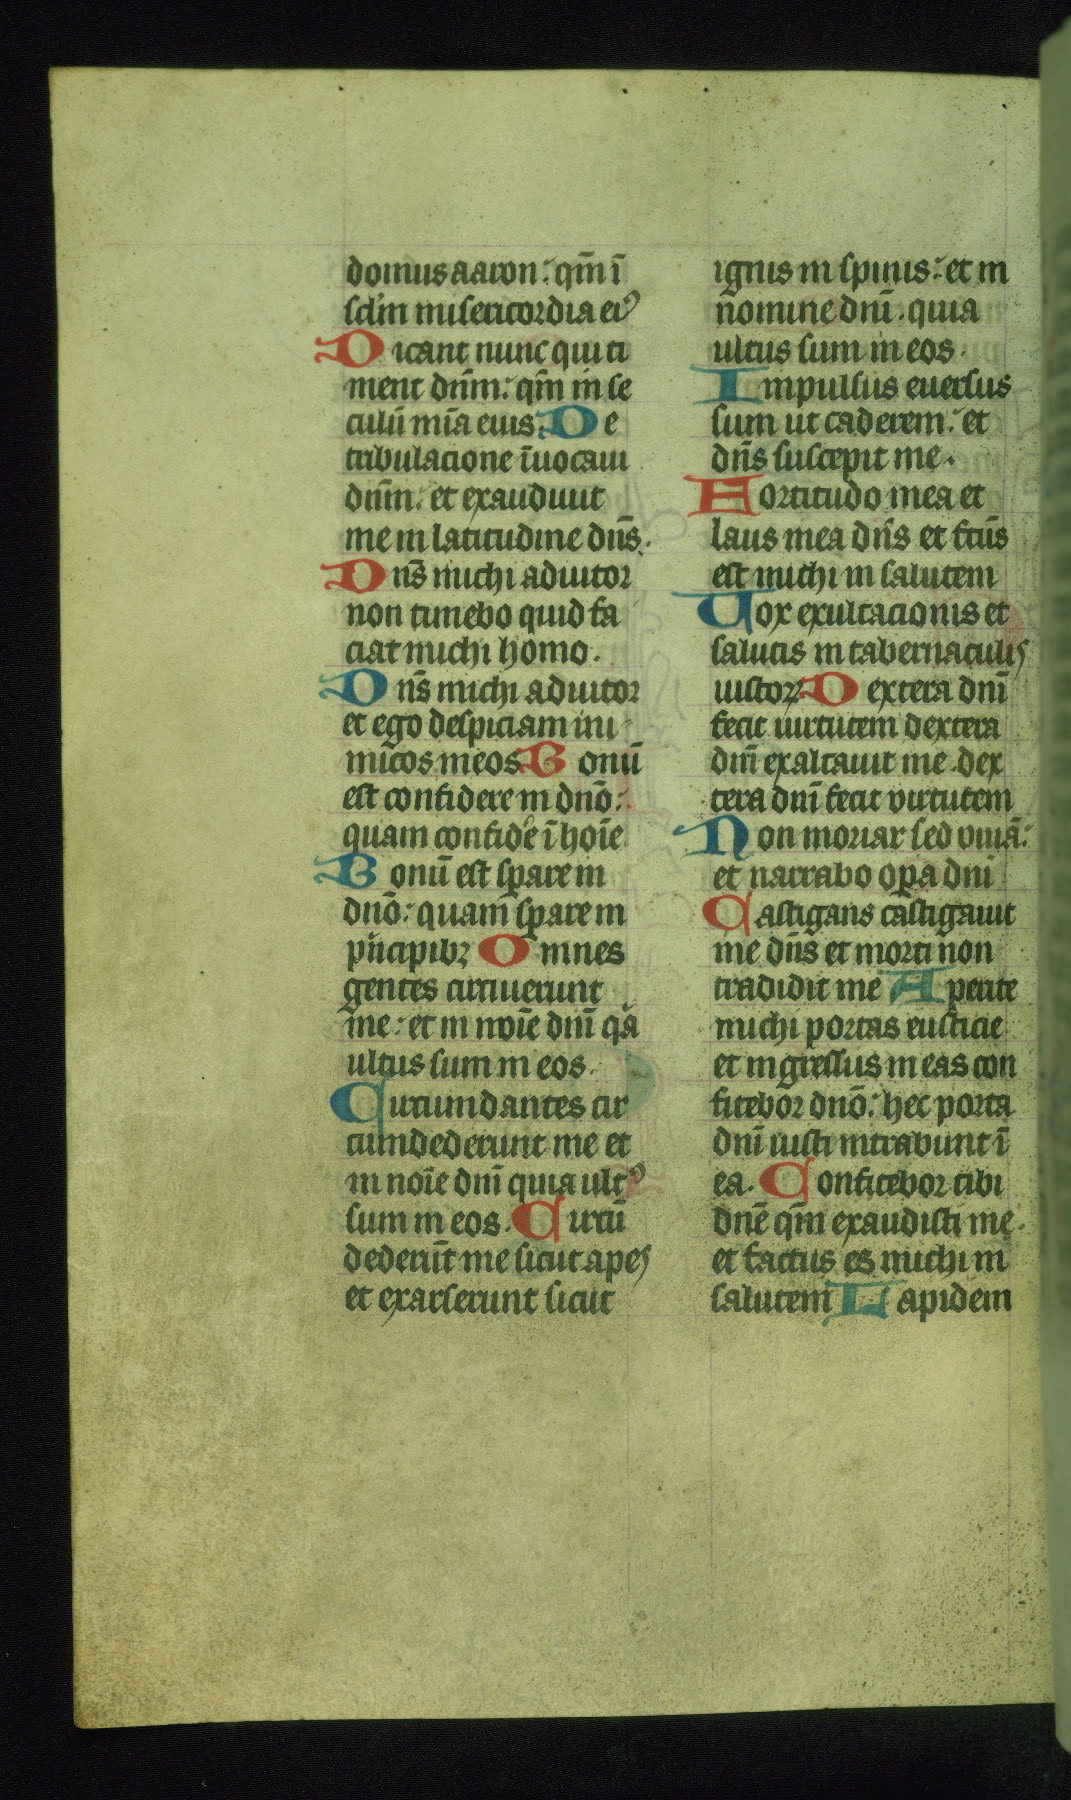 domus aaron: qm̄ ī
sclm̄ misericordia ei⁹
Dicant nunc qui ti
ment dnm̄: qm̄ in se
culū mīa eius. De
tribulacione īuocaui
dnm̄: et exaudiuit
me in latitudine dn̄s.
Dn̄s michi adiutor
non timebo quid fa
ciat michi homo.
Dn̄s michi adiutor
et ego despiciam ini
micos meos Bonū
est confidere in dnō:
quam confide ī hoīe
Bonū est sꝑare in
dnō: quam sꝑare in
pͥncipibꝫ Omnes
gentes circuierunt
me: et in noīe dnī qͣ
ultus sum in eos.
Circumdantes cir
cumdederunt me et
in noīe dnī quia ult⁹
sum in eos. Circū
dederūt me sicut apes
et exarserunt sicut
ignis in spinis: et in
nomine dnī. quia
ultus sum in eos.
Impulsus euersus
sum ut caderem: et
dn̄s suscepit me.
Fortitudo mea et
laus mea dn̄s et fctūs
est michi in salutem
Vox exultacionis et
salutis in tabernaculis
iustoꝝ Dextera dnī
fecit uirtutem dextera
dnī exaltauit me. dex
tera dnī fecit virtutem
Non moriar sed viuā:
et narrabo oꝑa dni
Castigans castigauit
me dn̄s et morti non
tradidit me Aperite
michi portas iusticie
et ingressus in eas con
fitebor dnō: hec porta
dnī iusti intrabunt ī
ea. Confitebor tibi
dnē qm̄ exaudisti me.
et factus es michi in
salutem Lapidem